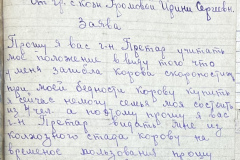 От гр. с. козы Громовой Ирини Сергеевн.
Заява
Прошу я вас г-н Претар учитать
мое положение в виду того что
у меня запала корова скоропостиж
при моей бедности корову купить
я сейчас немогу семья моя состоить
из 4 чел. а поэтому прошу я вас
г-н Претар видать мне из
колхозного стада корову на
временое пользования прошу